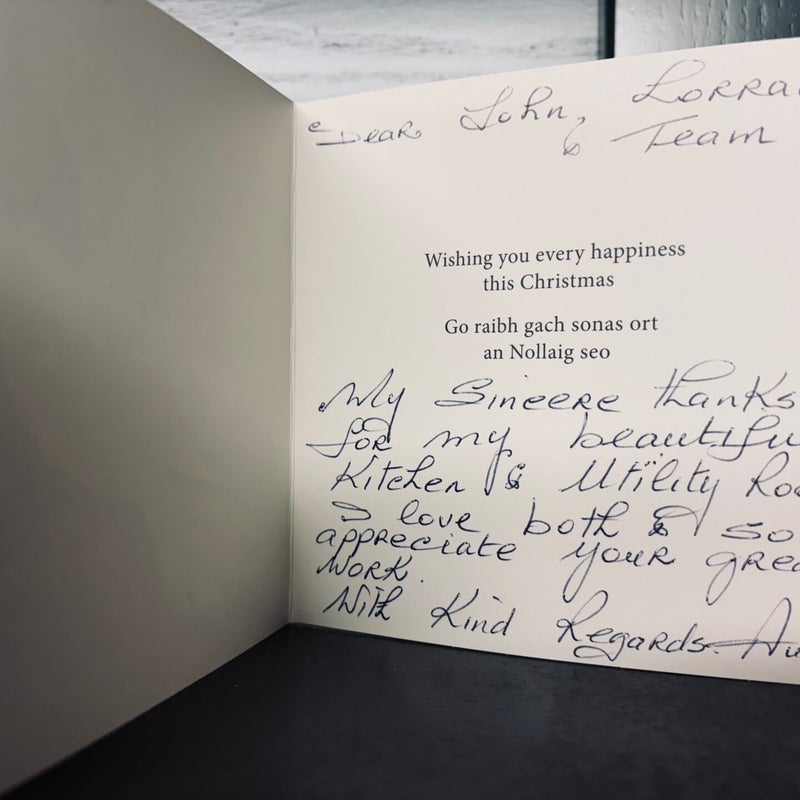 Dear John, Lorra
& Team
Wishing you every happiness
this Christmas
Go raibh gach sonas ort
an Nollaig seo
My Sincere thanks
for my beautifu
Kitchen & Utility Roo
I love both & so
appreciate your grea
Work.
With Kind Regards. Au